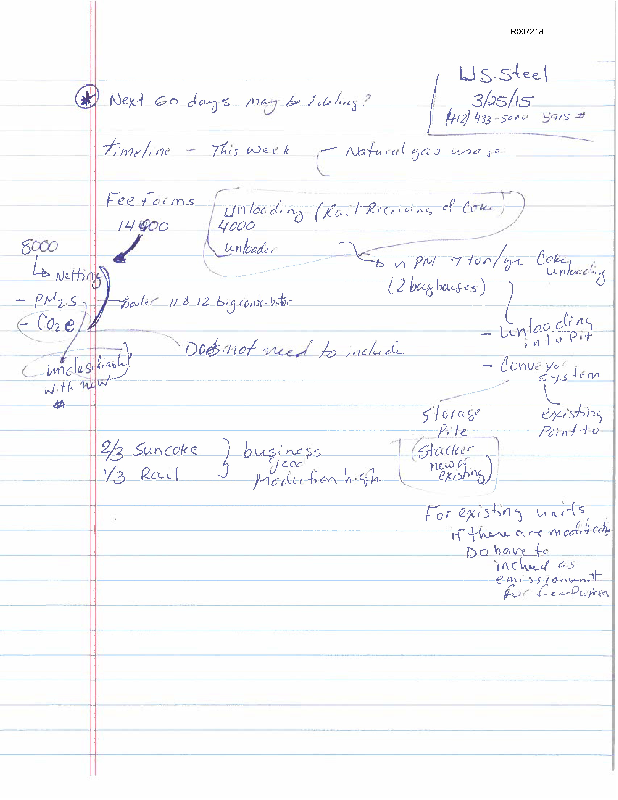 U.S. Steel
3/25/15
* Next 60 days may be idling?
Timeline - This week
Natural gas usage
Fee Forms
14000
Unloading (Rail Receiving of Coke)
4000
unloader
8000
Netting
- PM2.5
- CO2e
PM 7 ton/yr Coke
unloading
(2 baghouses)
Boiler 11 & 12 big contributor
- Unloading
into Pit
Does not need to include
with new
#
- Conveyor
system
Storage
Pile
existing
Point to
(Stacker
new or
existing)
2/3 Suncoke
1/3 Rail
business
year
Production high
For existing units,
if there are
Do have to
includ as
emission unit
for